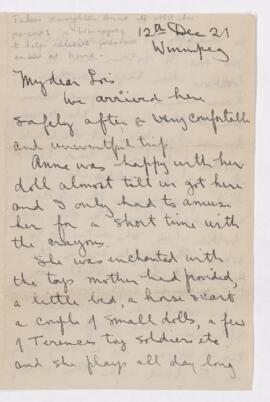 Takes daughter Anne to visit her
parents in Winnipeg
to help relieve
at home.
12th Dec 21
Winnipeg
My dear Lois
We arrived here
safely after a very comfortable
and uneventful trip.
Anne was happy with her
doll almost till we got here
and I only had to amuse
her for a short time with
the crayons.
She was enchanted with
the toys mother had provided,
a little bed, a house & cart
a couple of small dolls, a few
of Terence's toy soldiers etc.
and she plays all day long